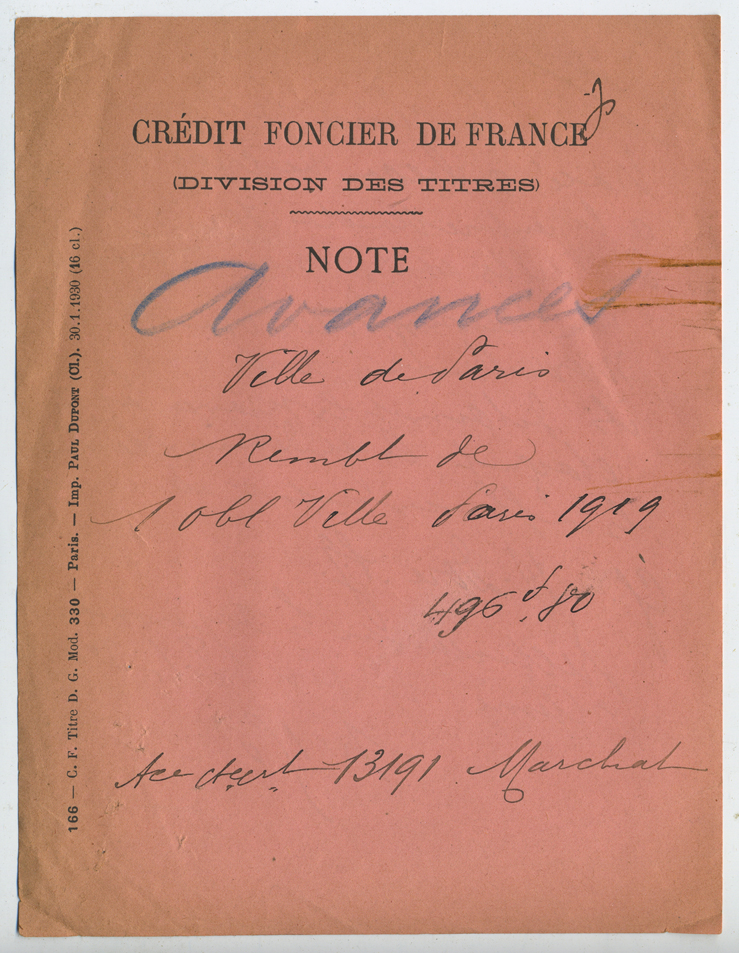 CRÉDIT FONCIER DE FRANCE
(DIVISION DES TITRES)
NOTE
Avances
Ville de Paris
Rembt de
1 obl Ville Paris 1919
496f,80
13191 Marchat
166 — C. F. Titre D. G. Mod. 330 — Paris. — Imp. PAUL DUPONT (Cl.). 30.1.1930 (16 cl.)